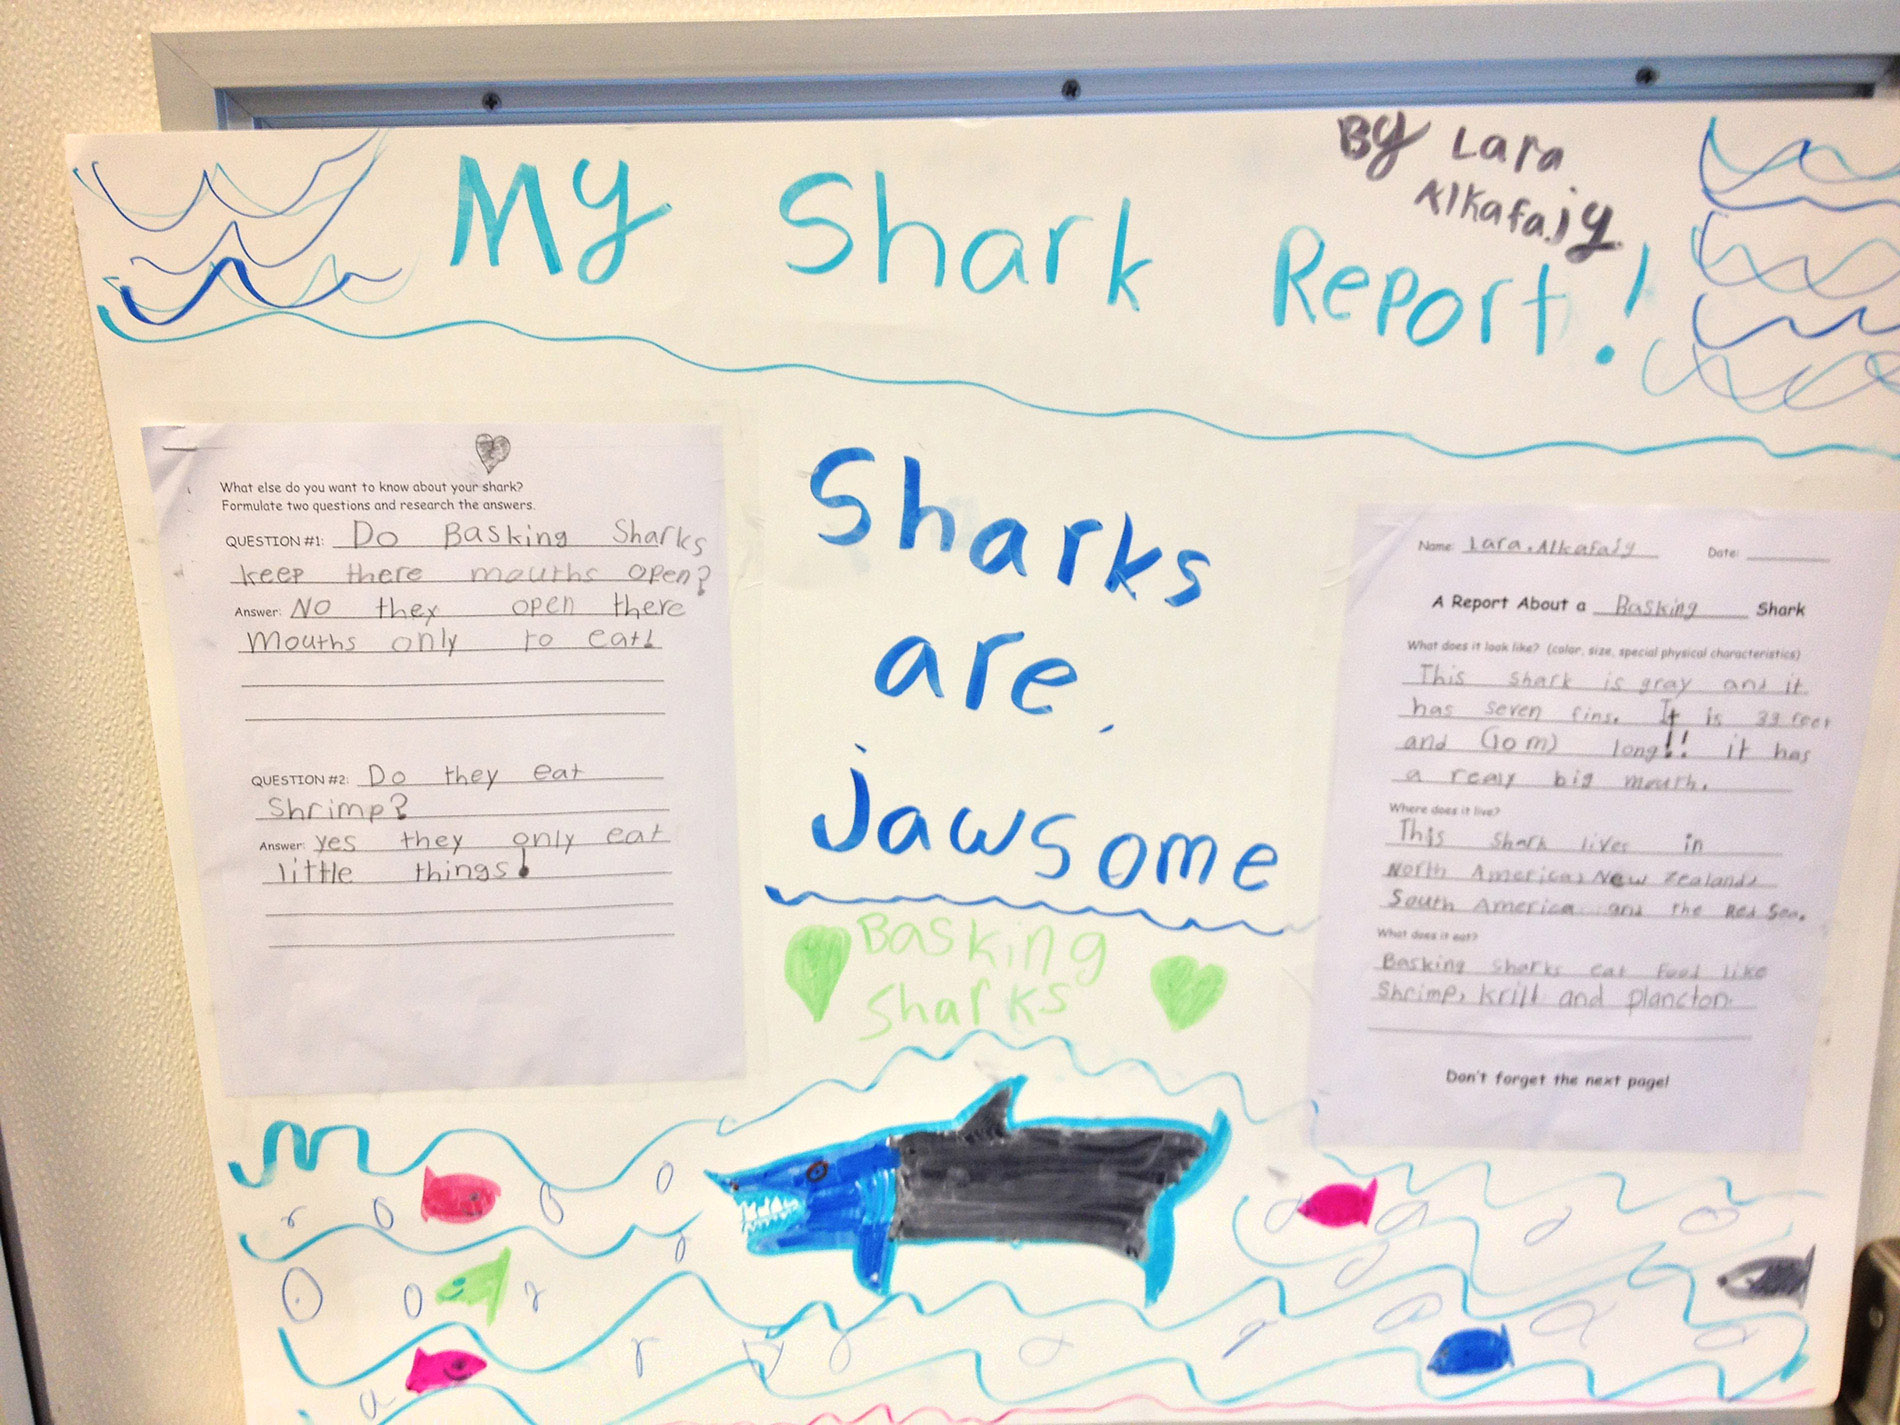 By Lara
Alkafajy
My Shark Report!
What else do you want to know about your shark?
Formulate two questions and research the answers.
QUESTION #1: Do Basking Sharks
keep there mouths open?
Answer: No they open there
mouths only to eat!
QUESTION #2: Do they eat
Shrimp?
Answer: yes they only eat
little things!
Sharks
are
jawsome
Basking
Sharks
Name: Lara. Alkafajy Date:
A Report About a Basking Shark
What does it look like? (color, size, special physical characteristics)
This shark is gray and it
has seven fins. It is 33 feet
and (10 m) long!! it has
a realy big mouth.
Where does it live?
This shark lives in
North America, New Zealand,
South America and the Red Sea.
What does it eat?
Basking sharks eat food like
Shrimp, krill and plancton.
Don't forget the next page!